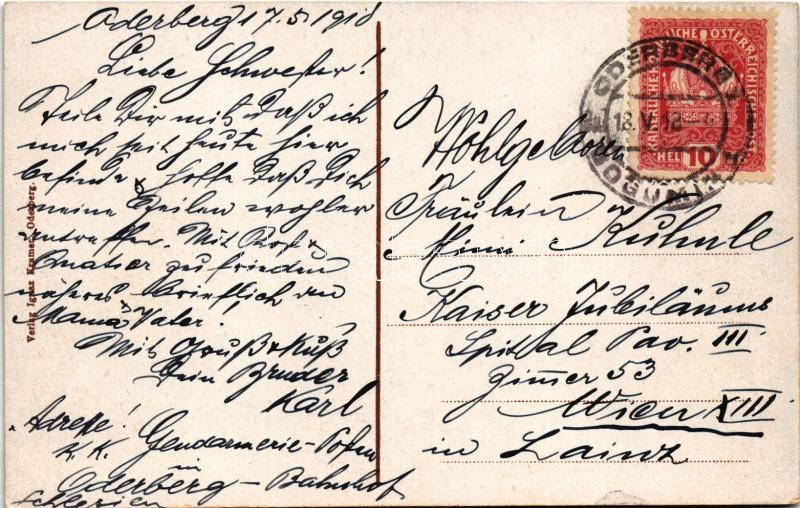 Oderberg 17.5.1918
Liebe Schwester!
Teile Dir mit, daß ich
mich seit heute hier
befinde & hoffe daß Dich
meine Zeilen wohler
antreffen. Mit
zufrieden
näheres brieflich an
Mama & Vater.
Mit Gruß & Kuß
Dein Bruder
Karl
Adresse!
K.K. Gendarmerie-Posten
in
Oderberg-Bahnhof
Schlesien
Verlag Ignaz Kramer, Oderberg.
Wohlgeboren
Fräulein
Mimi Kuhnle
Kaiser Jubiläums
Spital Pav. III
Zimmer 53
Wien XIII
in Lainz
KAISERLICHE KÖNIGLICHE ÖSTERREICHISCHE POST
HELLER 10
ODERBERG
18.V.18
BOGUMIN